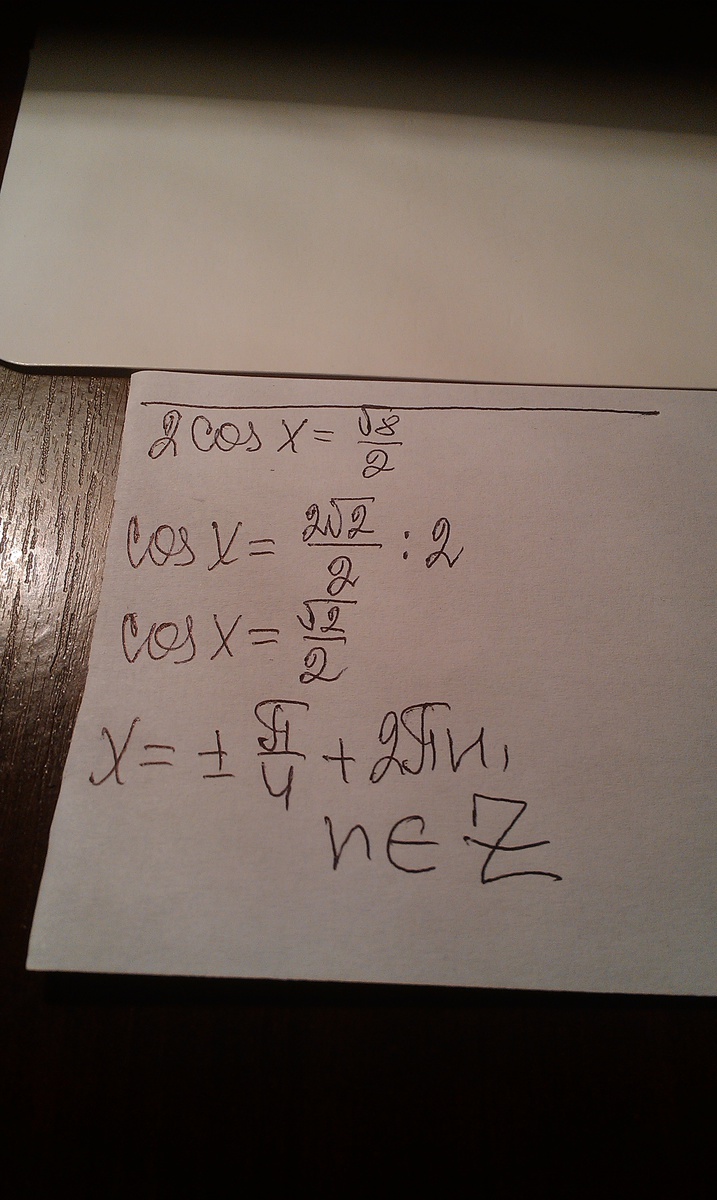 2 cos x = √8/2
cos x = 2√2/2 : 2
cos x = √2/2
x = ± π/4 + 2πn,
n ∈ Z